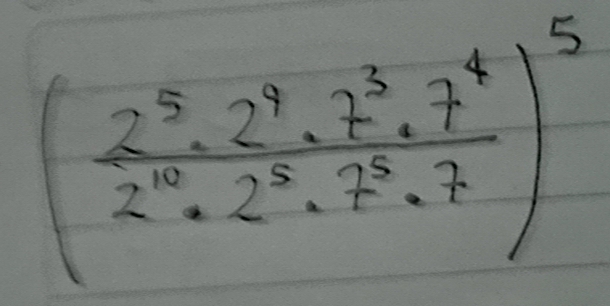 (2⁵ . 2⁹ . 7³ . 7⁴ / 2¹⁰ . 2⁵ . 7⁵ . 7)⁵